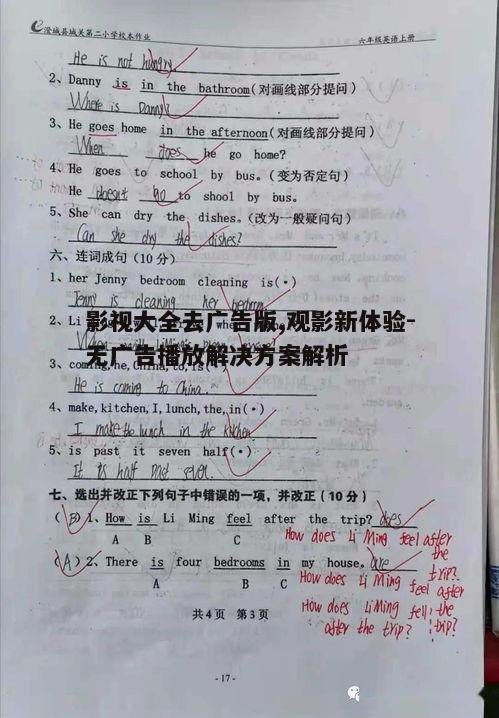 澄城县城关第二小学校本作业 六年级英语上册
He is not hungry
2、Danny is in the bathroom(对画线部分提问)
Where is Danny?
3、He goes home in the afternoon(对画线部分提问)
When does he go home?
4、He goes to school by bus。(变为否定句)
He doesn't go to shool by bus.
5、She can dry the dishes。(改为一般疑问句)
Can she dry the dishes?
六、连词成句(10分)
1、her Jenny bedroom cleaning is(•)
Jenny is cleaning her bedroom.
影视大全去广告版,观影新体验-
无广告播放解决方案解析
2、Li
3、coming,he,China,to,is(
He is coming to China.
4、make,kitchen,I,lunch,the,in(•)
I make the lunch in the kitchen
5、is past it seven half(•)
It is half past seven.
七、选出并改正下列句子中错误的一项,并改正(10分)
(B)1、How is Li Ming feel after the trip? does
A B C
How does Li Ming feel after the trip?
(A)2、There is four bedrooms in my house。 are
A B C
How does Li Ming feel after the trip?
How does Li Ming fell after the trip?
共4页 第3页
- 17 -